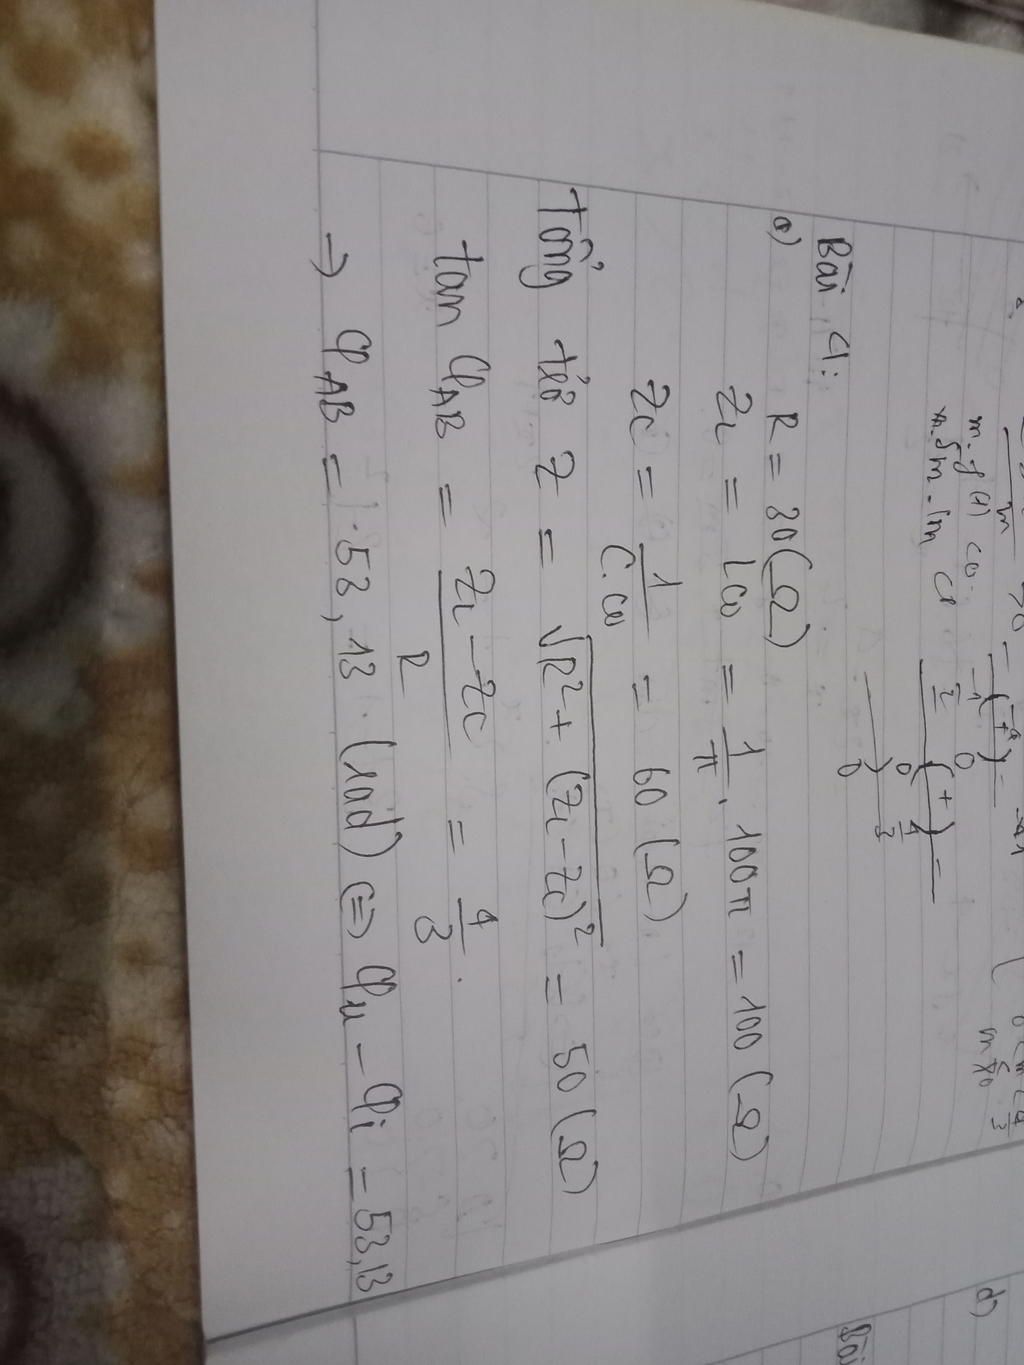 Bài 4:
a) R = 30 (Ω)
ZL = Lω = 1/π . 100π = 100 (Ω)
ZC = 1/C.ω = 60 (Ω)
Tổng trở Z = √R² + (ZL - ZC)² = 50 (Ω)
tan φAB = ZL - ZC/R = 4/3.
⇒ φAB = 53,13 (rad) ⇔ φu - φi = 53,13
d)
Bài